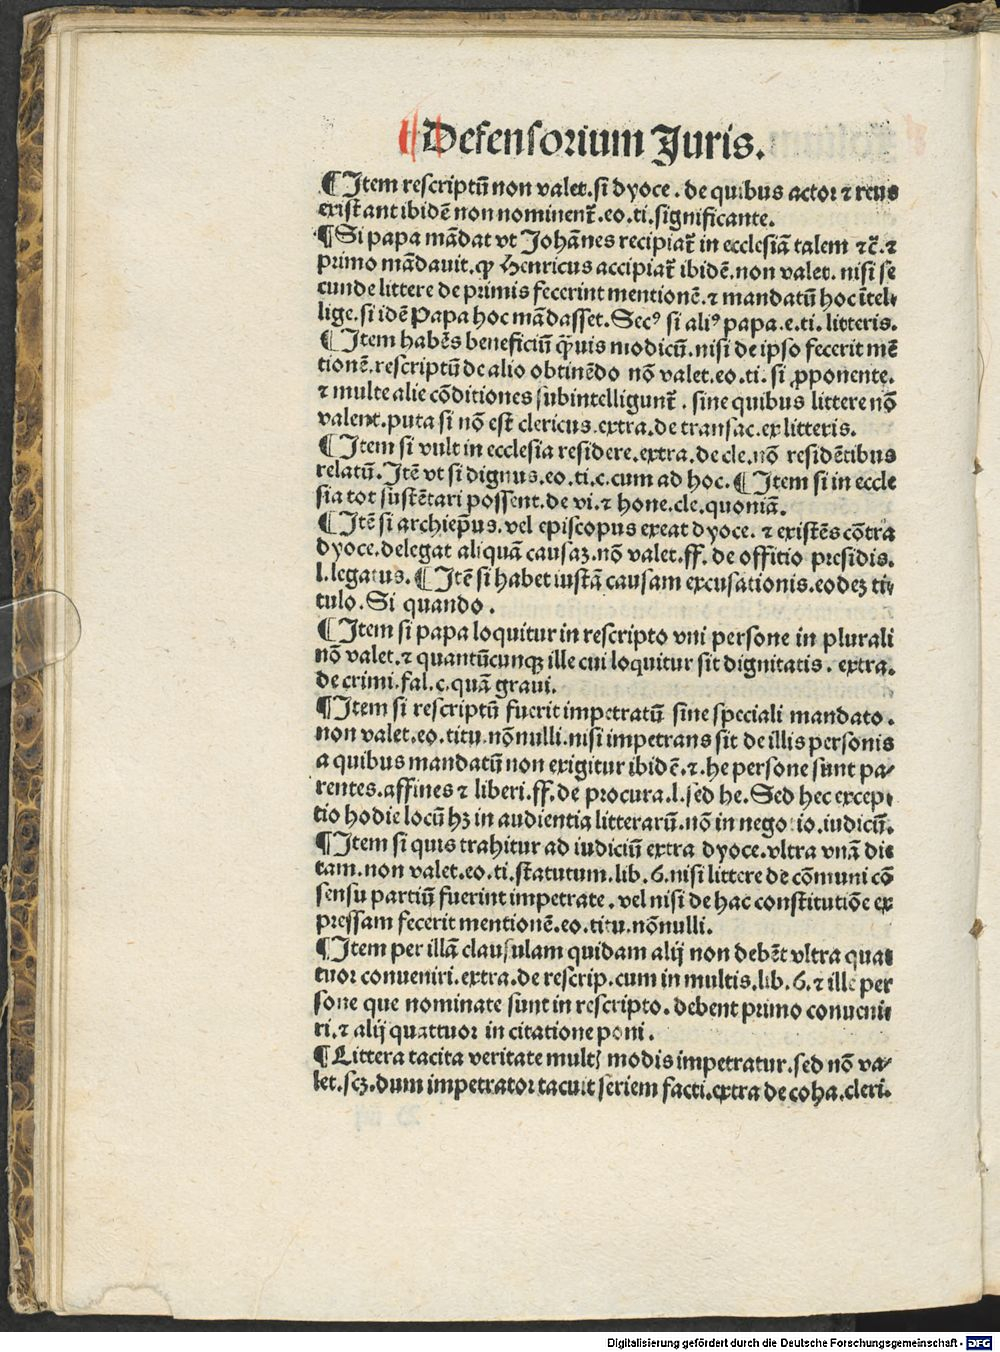 Defensorium Juris.
¶ Item rescriptū non valet. si dyoce. de quibus actor ⁊ reus
existant ibidē non nominent᷑. eo. ti. significante.
¶ Si papa mādat vt Johānes recipiat᷑ in ecclesiā talem ⁊c̄. ⁊
primo mādauit. ꝙ Henricus accipiat᷑ ibidē. non valet. nisi se
cunde littere de primis fecerint mentionē. ⁊ mandatū hoc ītel⸗
lige. si idē Papa hoc mādasset. Secꝰ si aliꝰ papa. e. ti. litteris.
¶ Item habēs beneficiū q̄uis modicū. nisi de ipso fecerit mē
tionē. rescriptū de alio obtinēdo nō valet. eo. ti. si ꝓponente.
⁊ multe alie cōditiones subintelligunt᷑. sine quibus littere nō
valent. puta si nō est clericus. extra. de transac. ex litteris.
¶ Item si vult in ecclesia residere. extra. de cle. nō residētibus
relatū. Itē vt si dignus. eo. ti. c. cum ad hoc. ¶ Item si in eccle
sia tot sustētari possent. de vi. ⁊ hone. cle. quoniā.
¶ Itē si archiep̄us. vel episcopus exeat dyoce. ⁊ existēs cōtra
dyoce. delegat aliquā causaꝫ. nō valet. ff. de offitio presidis.
l. legatus. ¶ Itē si habet iustā causam excusationis. eodeꝫ ti⸗
tulo. Si quando.
¶ Item si papa loquitur in rescripto vni persone in plurali
nō valet. ⁊ quantūcunqꝫ ille cui loquitur sit dignitatis. extra.
de crimi. fal. c. quā graui.
¶ Item si rescriptū fuerit impetratū sine speciali mandato.
non valet. eo. titu. nōnulli. nisi impetrans sit de illis personis
a quibus mandatū non exigitur ibidē. ⁊. he persone sunt pa⸗
rentes. affines ⁊ liberi. ff. de procura. l. sed he. Sed hec excep⸗
tio hodie locū hꝫ in audientia litterarū. nō in negotio. iudicū.
¶ Item si quis trahitur ad iudiciū extra dyoce. vltra vnā die
tam. non valet. eo. ti. statutum. lib. 6. nisi littere de cōmuni cō
sensu partiū fuerint impetrate. vel nisi de hac constitutiōe ex
pressam fecerit mentionē. eo. titu. nōnulli.
¶ Item per illā clausulam quidam alij non debēt vltra quat
tuor conueniri. extra. de rescrip. cum in multis. lib. 6. ⁊ ille per
sone que nominate sunt in rescripto. debent primo conueni⸗
ri. ⁊ alij quattuor in citatione poni.
¶ Littera tacita veritate multꝭ modis impetratur. sed nō va⸗
let. scꝫ. dum impetrator tacuit seriem facti. extra de coha. cleri.
Digitalisierung gefördert durch die Deutsche Forschungsgemeinschaft - DFG